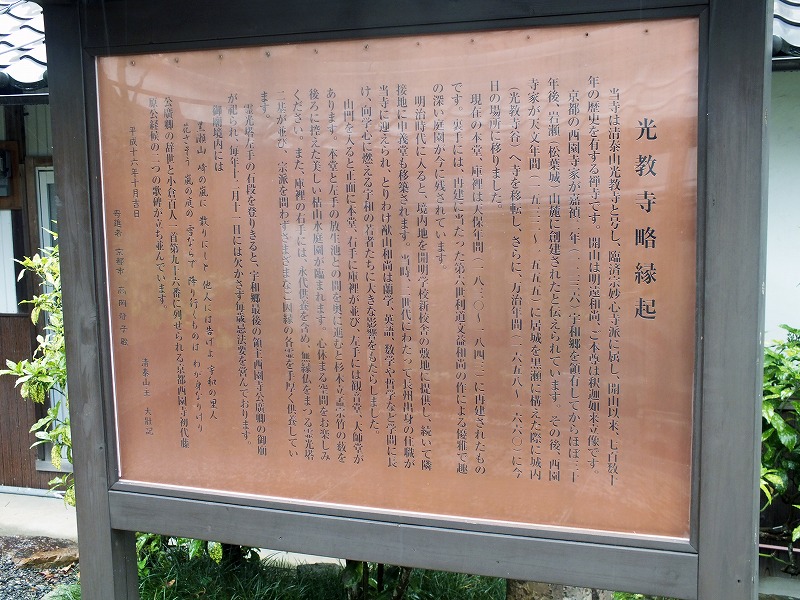 光教寺略縁起
当寺は清泰山光教寺と号し、臨済宗妙心寺派に属し、開山以来、七百数十
年の歴史を有する禅寺です。開山は明遠和尚、ご本尊は釈迦如来立像です。
京都の西園寺家が嘉禎二年（一二三六）宇和郷を領有してからほぼ三十
年後、岩瀬（松葉城）山麓に創建されたと伝えられています。その後、西園
寺家が天文年間（一五三二～一五五五）に居城を黒瀬に構えた際に城内
（光教寺谷）へ寺を移転し、さらに、万治年間（一六五八～一六六〇）に今
日の場所に移りました。
現在の本堂、庫裡は天保年間（一八三〇～一八四三）に再建されたもの
です。裏手には、再建に当たった第六世利道文益和尚の作による優雅で趣
の深い庭園が今に残されています。
明治時代に入ると、境内地を開明学校新校舎の敷地に提供し、続いて隣
接地に申義堂も移築されます。当時、三世代にわたって長州出身の住職が
当寺に迎えられ、とりわけ献山和尚は蘭学、英語、数学や哲学など学問に長
け、向学心に燃える宇和の若者たちに大きな影響をもたらしました。
山門を入ると正面に本堂、右手に庫裡が並び、左手には観音堂、大師堂が
あります。本堂と左手の放生池との間を奥に進むと杉木立、孟宗竹の藪を
後ろに控えた美しい枯山水庭園が臨まれます。心休まる空間をお楽しみ
ください。また、庫裡の右手には、永代供養を含め、無縁仏をまつる霊光塔
二基が並び、宗派を問わずさまざまなご因縁の各霊を手厚く供養してい
ます。
霊光塔左手の石段を登りきると、宇和郷最後の領主西園寺公廣卿の御廟
が祀られ、毎年十一月十一日には欠かさず毎歳忌法要を営んでおります。
御廟境内には
黒瀬山 峰の嵐に 散りにしと 他人には告げよ 宇和の里人
花さそう 嵐の庭の 雪ならで 降り行くものは わが身なりけり
公廣卿の辞世と小倉百人一首第九十六番に列せられる京都西園寺初代藤
原公経候の二つの歌碑が立ち並んでいます。
平成十六年十月吉日
清泰山主 大壯記
寄進者 京都市